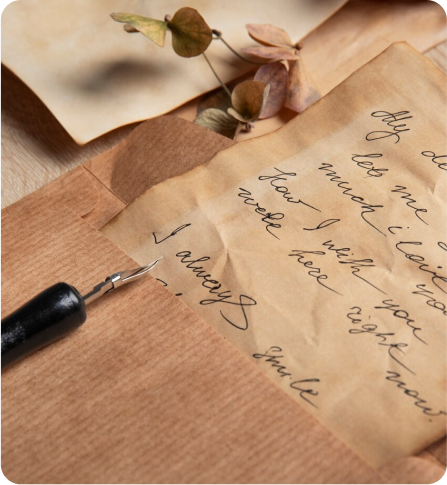 My
let me
much i love you
How I wish you
were here right now.
I always smile